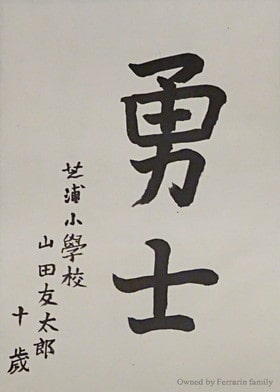 勇士
芝浦小學校
山田友太郎
十歲
Owned by Ferrarin family